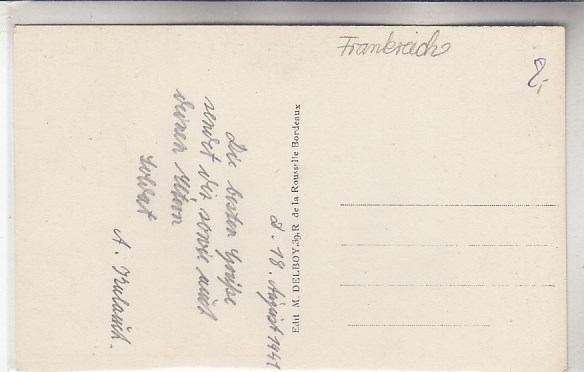 Frankreich
8,-
Die besten Grüße
sendet dir sowie auch
deinen Eltern
Soldat
A.
d. 18. August 1941
Edit M. DELBOY.39.R de la Rousselle Bordeaux